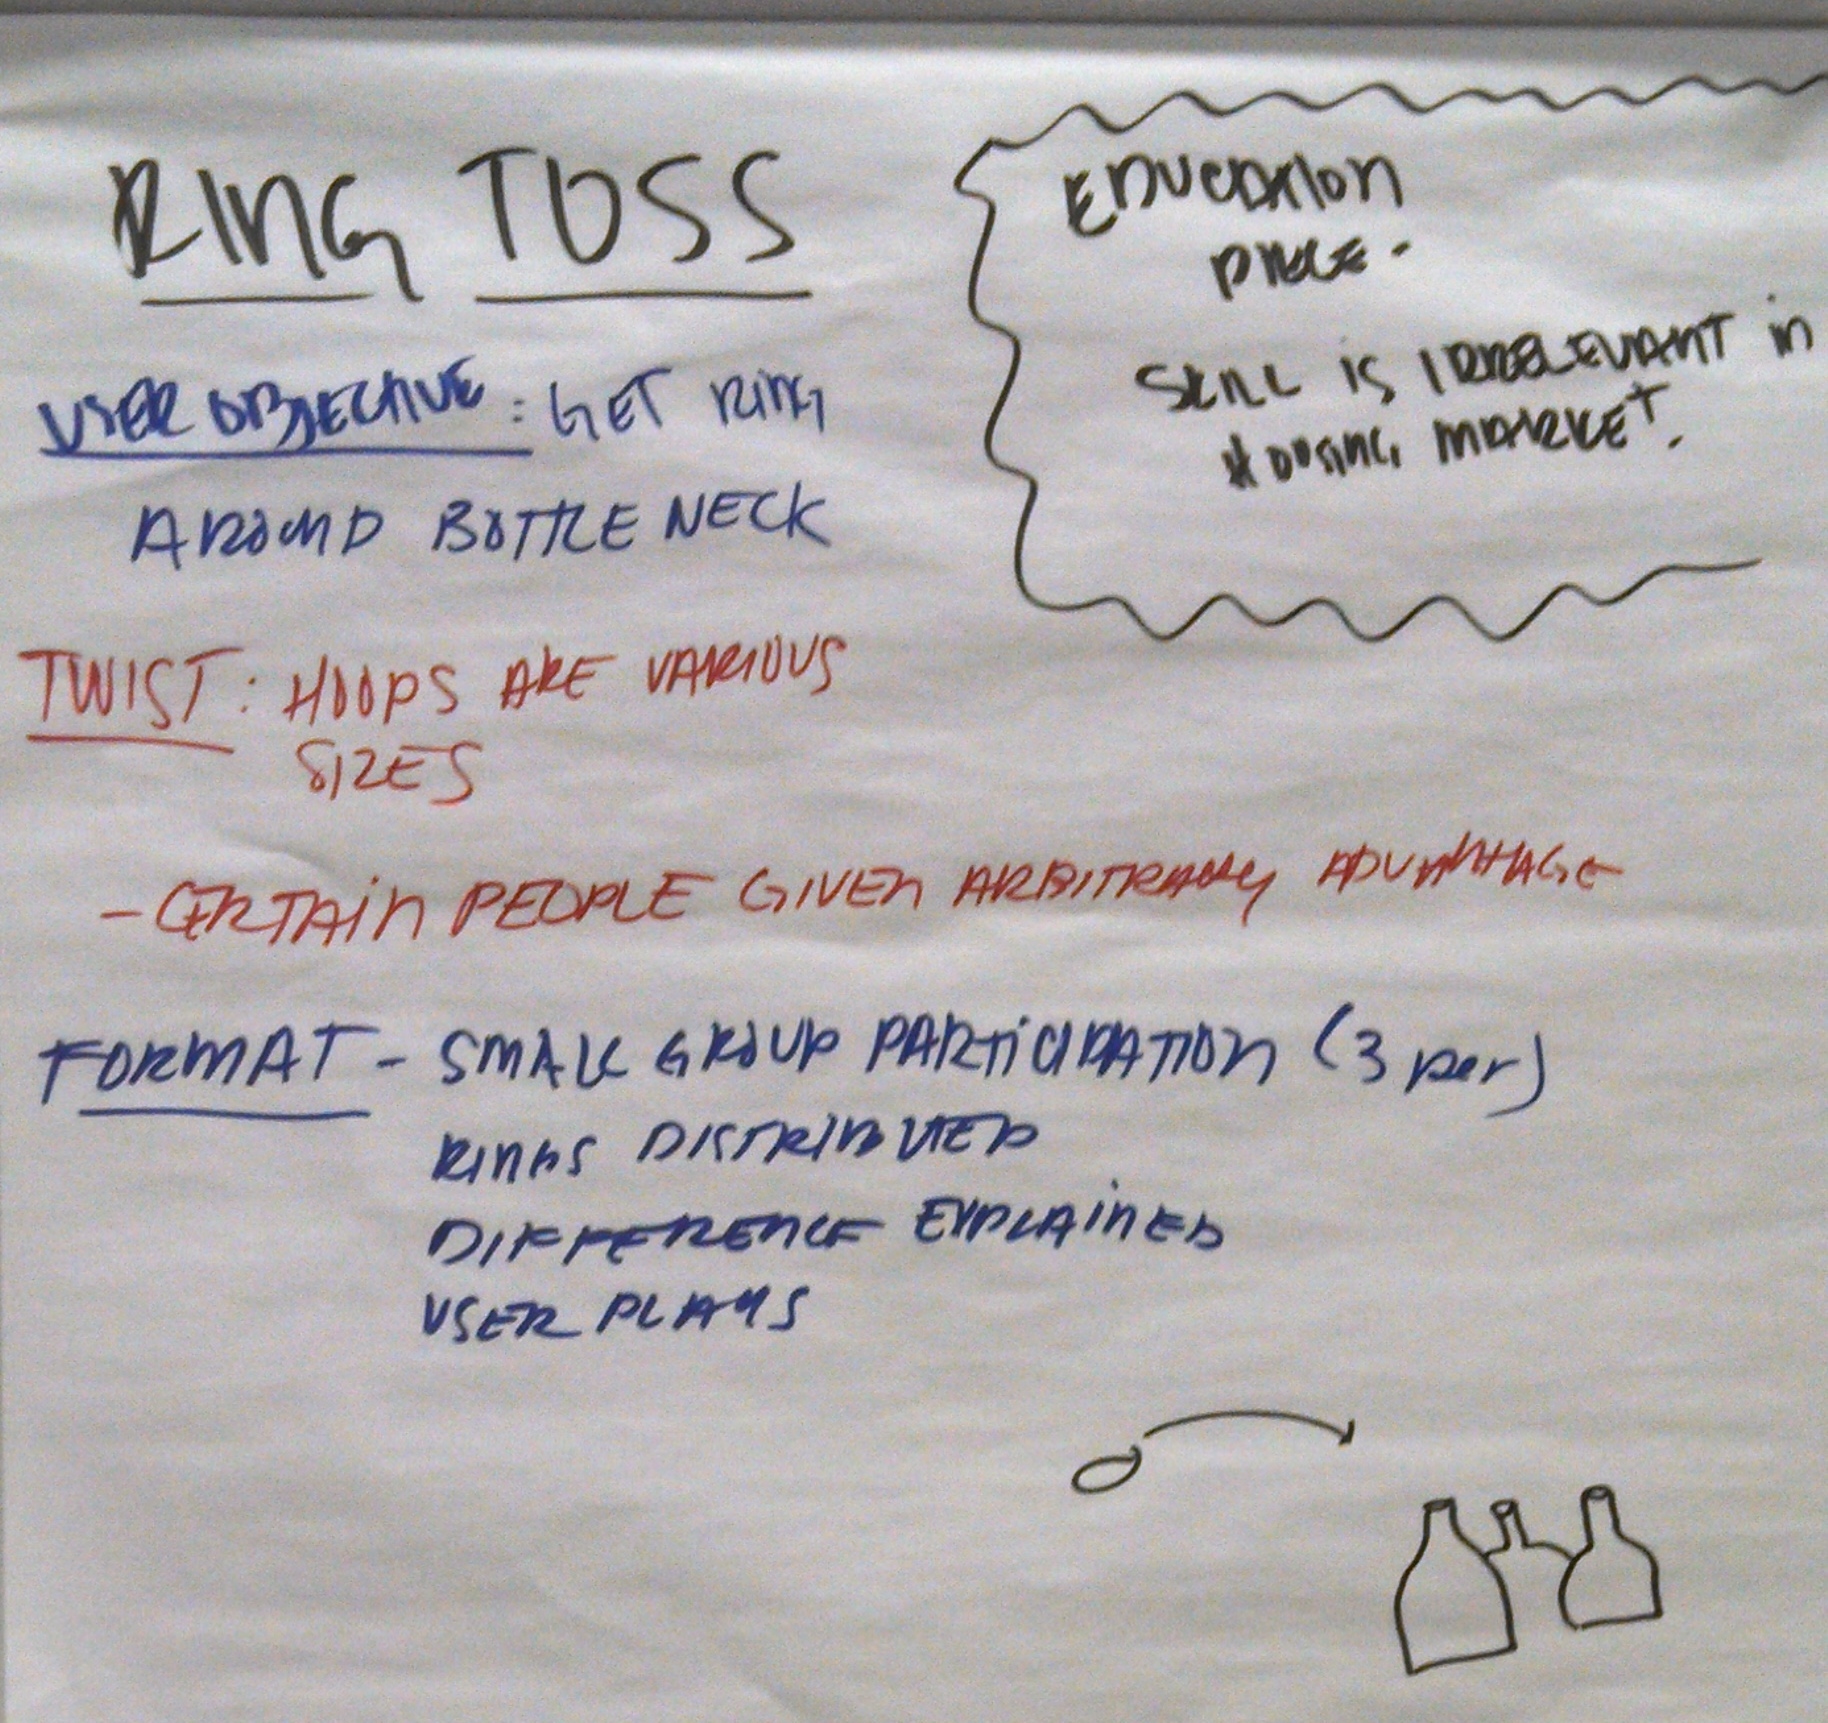 RING TOSS
USER OBJECTIVE: GET RING
AROUND BOTTLE NECK
TWIST: HOOPS ARE VARIOUS
SIZES
- CERTAIN PEOPLE GIVEN ARBITRARY ADVANTAGE
FORMAT - SMALL GROUP PARTICIPATION (3 per)
RINGS DISTRIBUTED
DIFFERENCE EXPLAINED
USER PLAYS
EDUCATION
PIECE.
SKILL IS IRRELEVANT in
HOUSING MARKET.